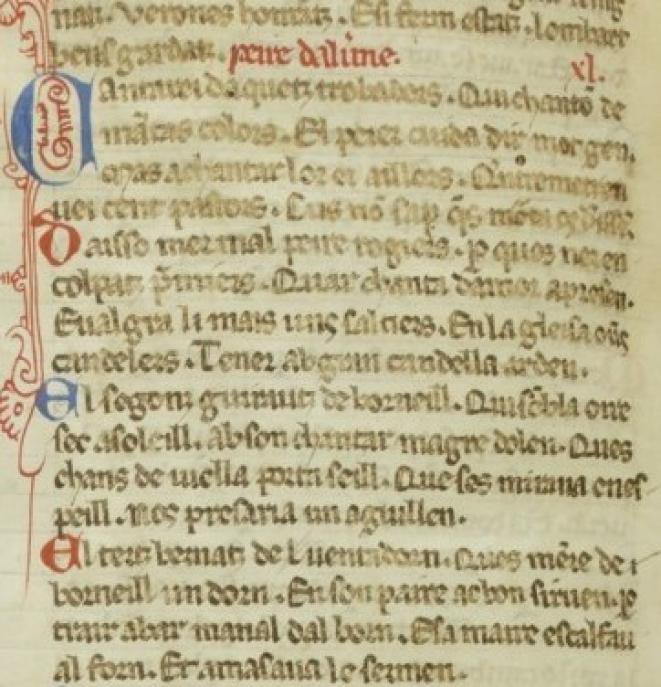 nan. Verones homatz. Esi ferm estatz. lombart
bens gardatz. peire daluine. xl.
Cantarei daquetz trobadors. Qui chantō de
mātas colors. El peier cuida dir mot gen.
Mas a chantar lor er aillors. Quitremetren
uei cent pastors. Cus nō sap q̄s
Daisso mer mal peire rogiers. ꝑ quos neren
colpatz p̄miers. Quar chanta damor apresen.
E ualgra li mais uns saltiers. En la gleisa o us
candelers. Tener ab gran candella arden.
El segonz girautz de borneill. Qui sēbla oire
sec a soleill. Ab son chantar magre dolen. Ques
chans de uiella porta seill. Que ses miraua enes
peill. nos presaria un aguillen.
El tertz bernatz de Luentadorn. Ques mēre de
borneill un dorn. En son paire ac bon siruen. ꝑ
trair ab arc manal dal born. Esa maire escalfau
al forn. Et amasaua le sermen.